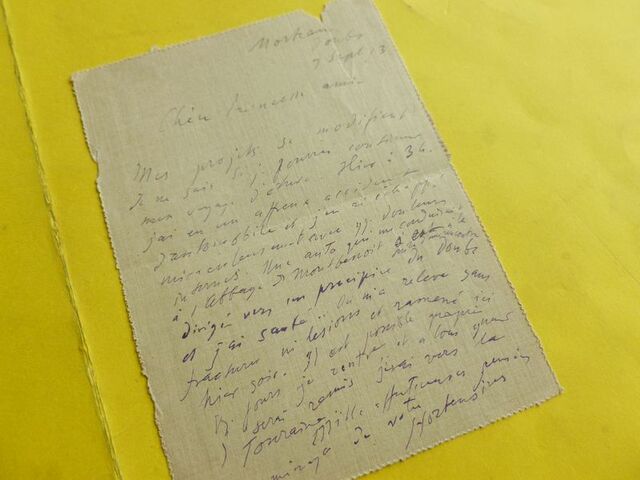 Morteau
Doubs
7 sept 13
Chère Princesse amie
Mes projets se modifient
Je ne sais si je pourrai continuer
mon voyage d'études. Hier à 3h.
j'ai eu un affreux accident
d'automobile et j'en ai échappé
miraculeusement avec douleurs
internes. Une auto qui me conduisait
à l'abbaye de Montbenoit s'est
dirigée vers un précipice du Doubs
et j'ai sauté !! On m'a relevé sans
fractures ni lésions et ramené ici
hier soir. Il est possible
jours je rentre et alors quand
serai remis j'irai vers la
Touraine
Mille affectueuses pensées
de votre
Hortensius